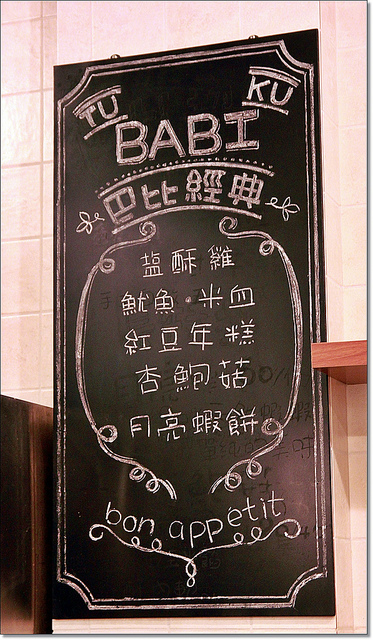 TU KU
BABI
巴比經典
盐酥雞
魷魚·米血
紅豆年糕
杏鮑菇
月亮蝦餅
bon appetit